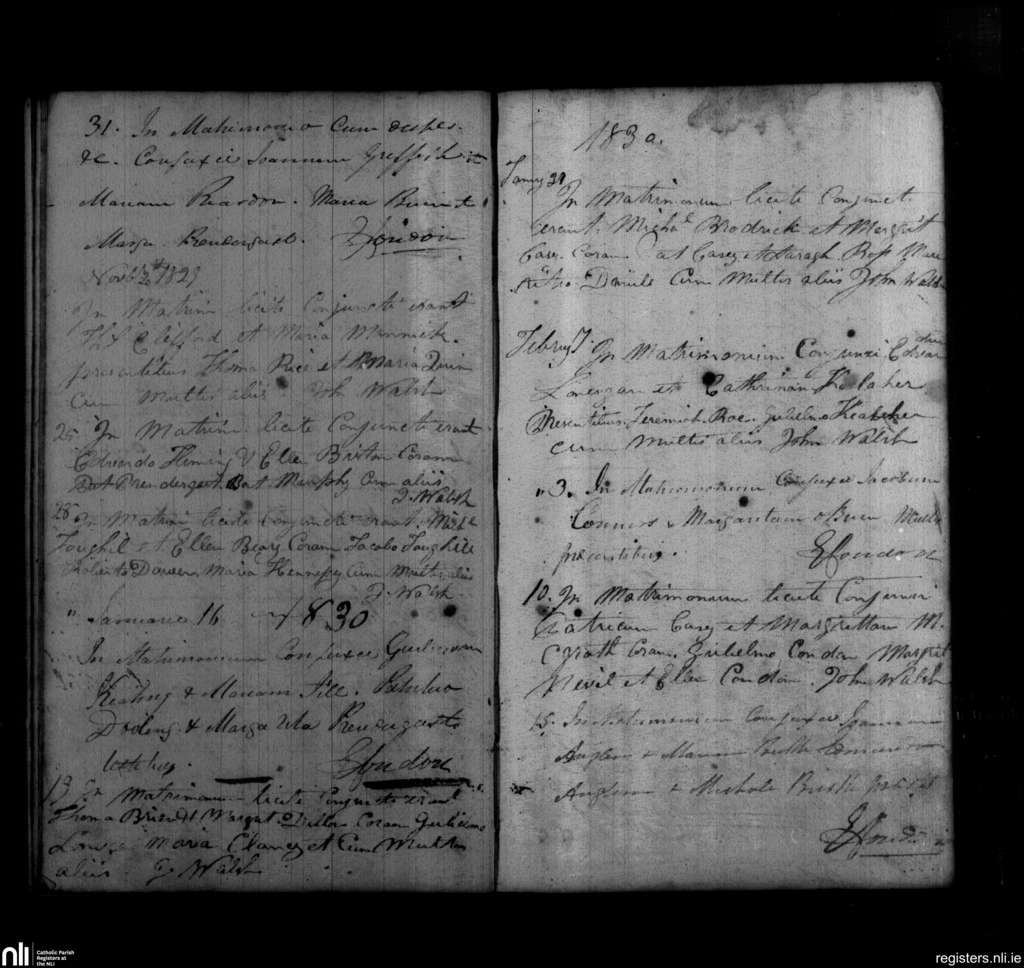 31. In Matrimonio Cum dispen-
&c. Conjunxi Joannem Griffith et
Mariam Reardon. Maria Brien et
Marga. Prendergast. J Condon
Novbr 1829
In Matrim licite Conjuncti erant
Ths Clifford et Maria
presentibus Thoma Rice et Maria Quin
cum multis aliis John Walsh
25 In Matrim licite Conjuncti erant
Edvardo Fleming & Ellen Briton Coram
Pat Prendergast Bat Murphy Cum aliis
J. Walsh
28 In Matrim licite Conjuncti erant. Michl
Toughil et Ellen Beary Coram Jacobo Toughill
Roberto Dawen, Maria Hennessy Cum Multis aliis
J. Walsh
" Januarii 16 1830
In Matrimonium Conjunxi Gulielmum
Keating & Mariam Hill.
& Margarita Prendergast
testibus. J Condon
19 In Matrimonium licite Conjuncti erant
Thoma Brien et Margret Dillon Coram Gulielmo
Maria Clancy et Cum Multis
aliis. J Walsh
1830.
Jany 21
In Matrimonium licite Conjuncti
erant. Michl Brodrick et Margrit
Casey. Coram Pat Casey
Cum Multis aliis John Walsh
Febrey 7 In Matrimonium Conjunxi Edvardum
Lonergan et Cathrinam Kelaher
Presentibus. Jeremiah Roe. Gulielmo Kelaher
cum multis aliis John Walsh
" 3. In Matrimonium Conjunxi Jacobum
Connors & Margaritam oBrien Multis
presentibus. J Condon
10. In Matrimonium licite Conjunxi
Patricium Casey et Margrettam M.
Crath Coram. Gulielmo Condon Margret
Nevil et Ellen Condon. John Walsh
15. In Matrimonium Conjunxi Joannem
Anglem & Mariam
Anglem & Michole
J Condon
nli
Catholic Parish
Registers at
the NLI
registers.nli.ie